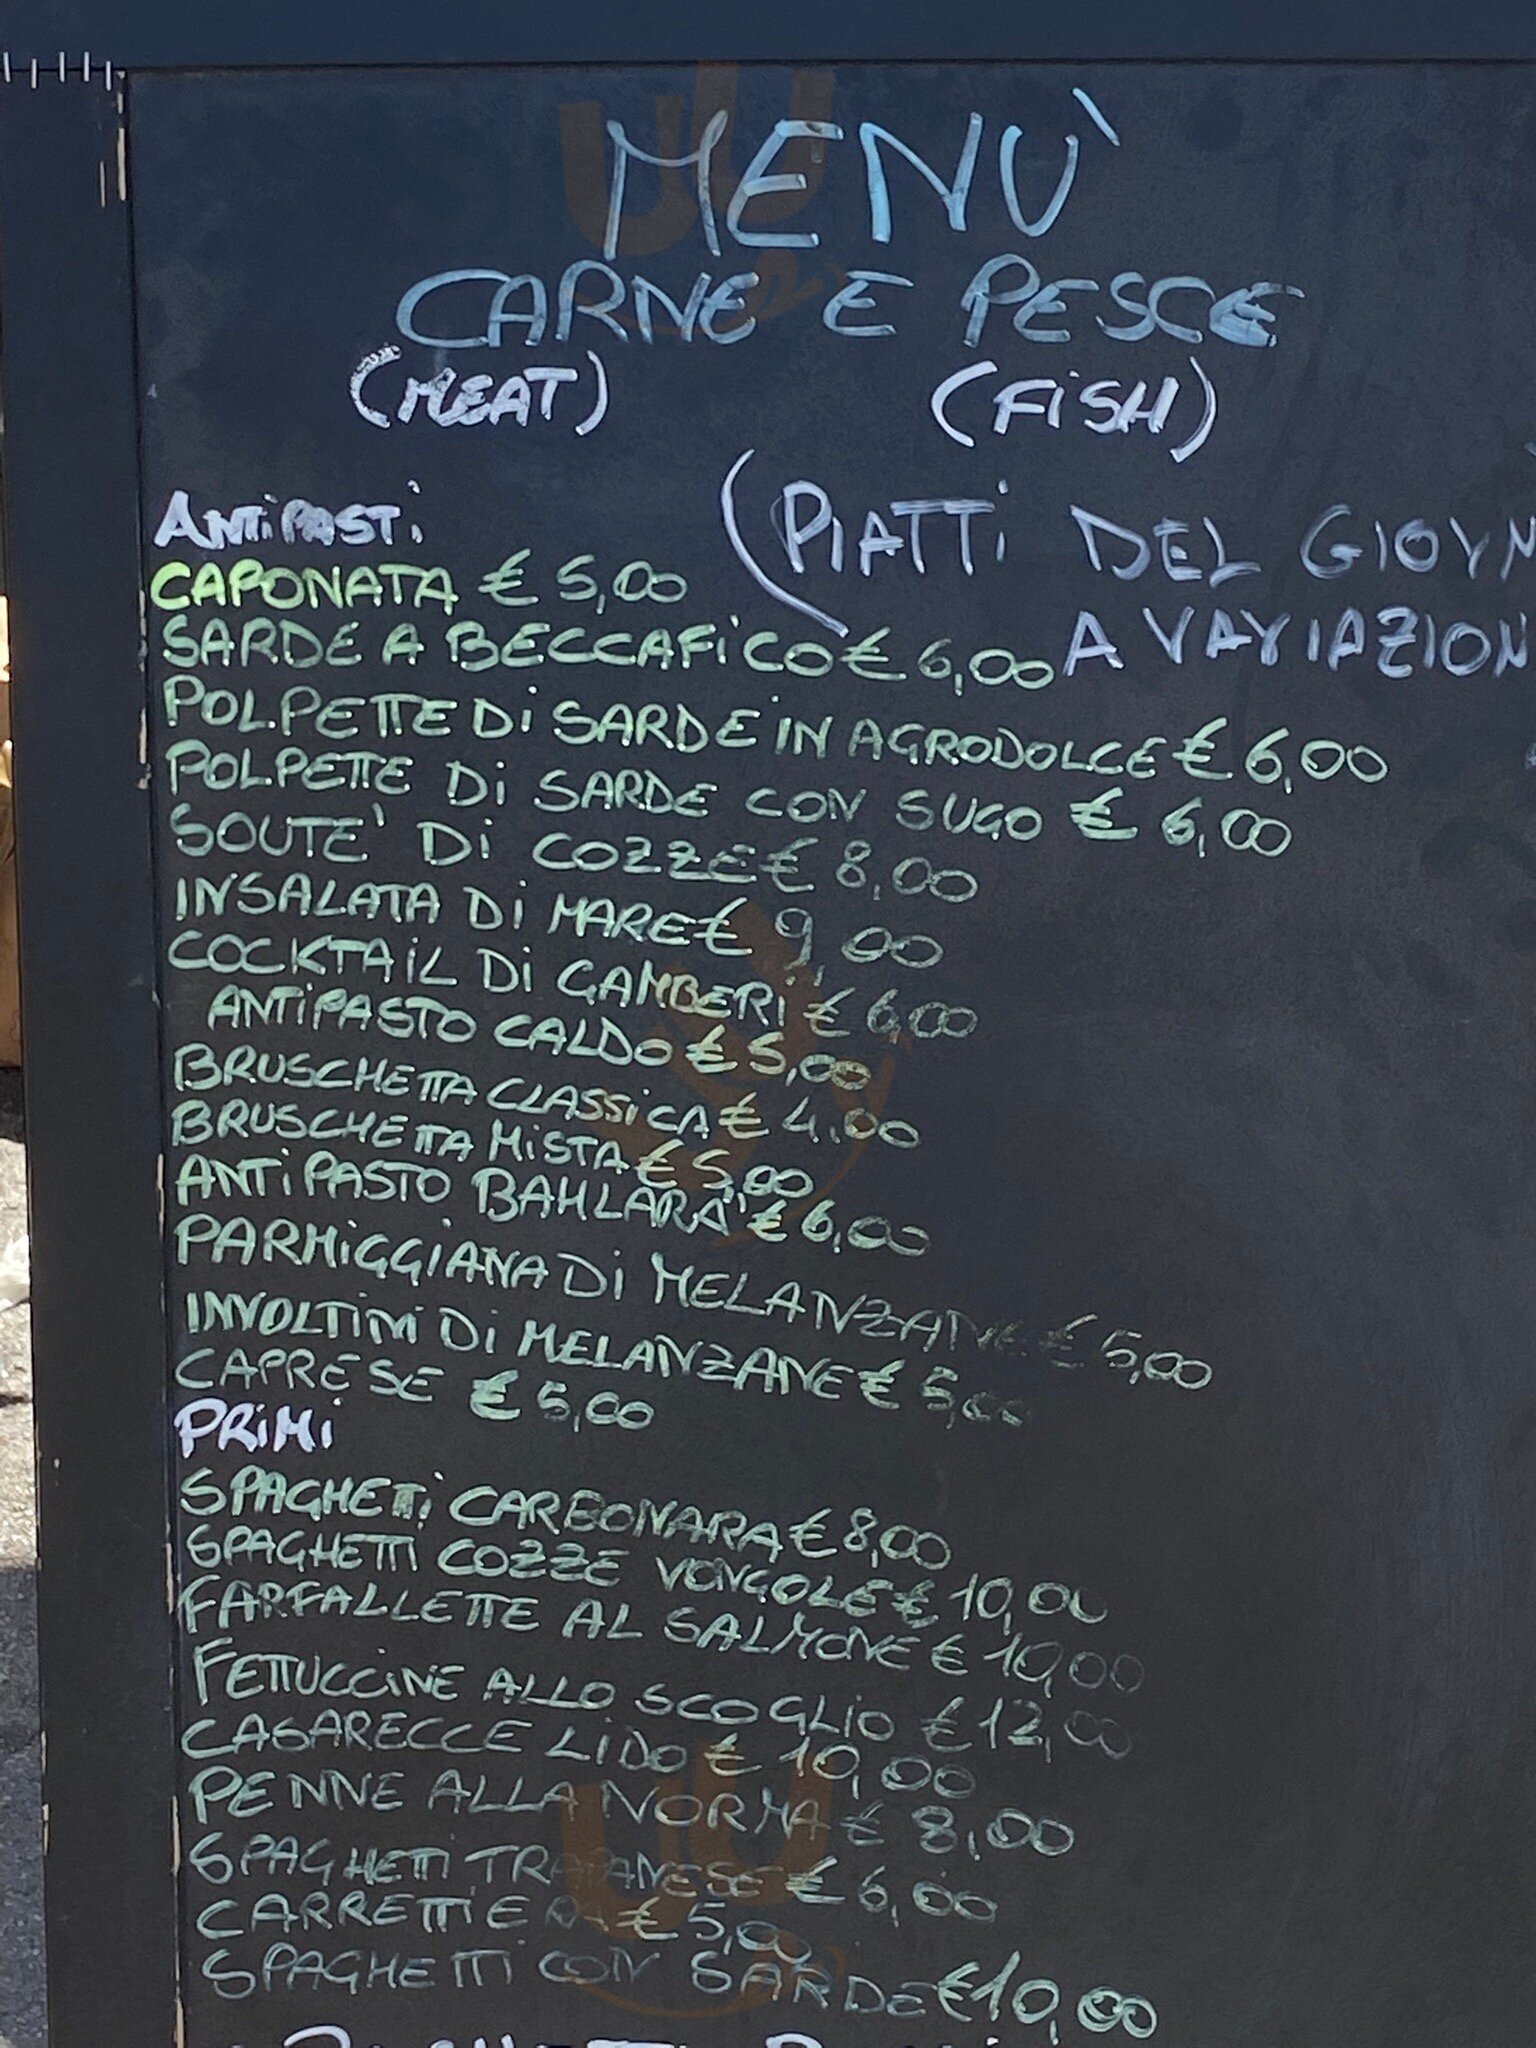 MENÙ
CARNE E PESCE
(MEAT) (FiSH)
ANTiPASTi
(PiATTi DEL GIORN
A VARIAZION
CAPONATA € 5,00
SARDE A BECCAFiCO € 6,00
POLPETTE Di SARDE iN AGRODOLCE € 6,00
POLPETTE Di SARDE CON SUGO € 6,00
SOUTE' Di COZZE € 8,00
INSALATA Di MARE € 9,00
COCKTAiL Di GAMBERi € 6,00
ANTiPASTO CALDO € 5,00
BRUSCHETTA CLASSiCA € 4,00
BRUSCHETTA MiSTA € 5,00
ANTiPASTO BAHLARA' € 6,00
PARMiGGIANA Di MELANZANE € 5,00
INVOLTINI Di MELANZANE € 5,00
CAPRESE € 5,00
PRiMi
SPAGHETTi CARBONARA € 8,00
SPAGHETTI COZZE VONGOLE € 10,00
FARFALLETTE AL SALMONE € 10,00
FETTUCCiNE ALLO SCOGLIO € 12,00
CASARECCE LiDO € 10,00
PENNE ALLA NORMA € 8,00
SPAGHETTI TRAPANESE € 6,00
CARRETTIERA € 5,00
SPAGHETTI CON SARDE €10,00